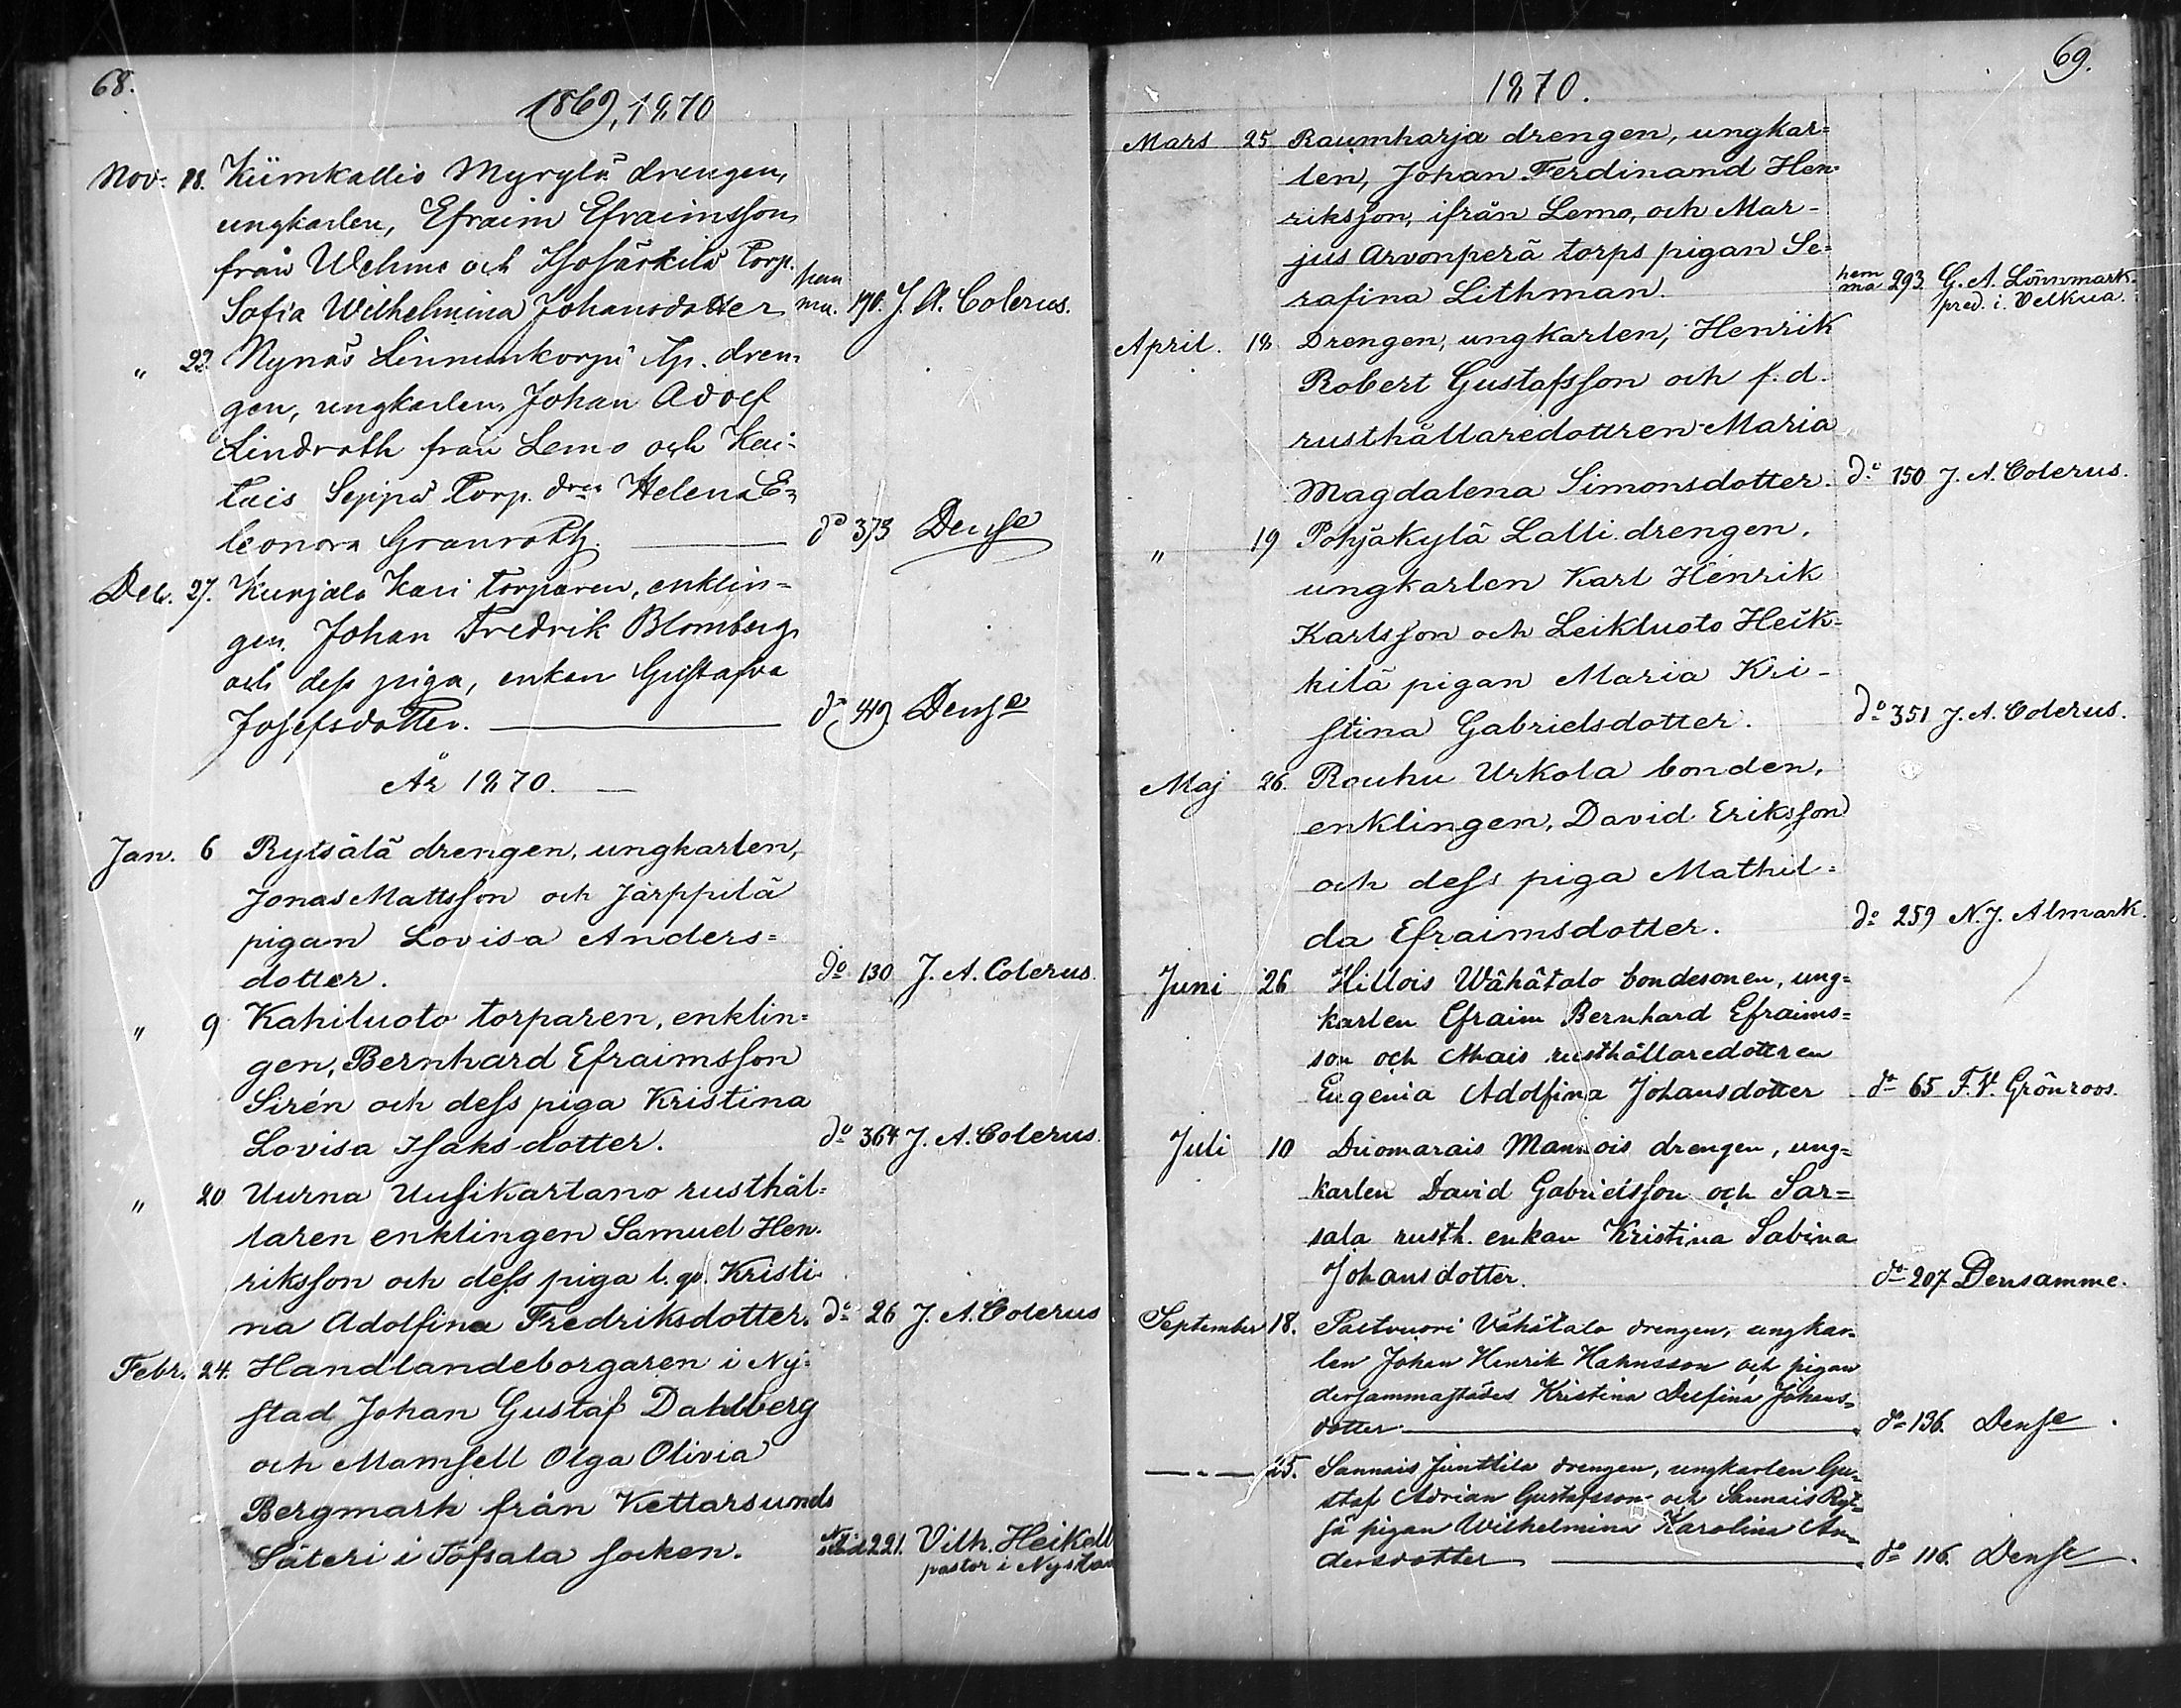 68.
1869, 1870
Nov. 18. Kiimkallis Myrylä drengen,
ungkarlen, Efraim Efraimsson
från Wehmo och Isosärkilä Torp.
Sofia Wilhelmina Johansdotter hem ma. 190. J. A. Colerus.
" 22. Nynäs tp. dren-
gen, ungkarlen, Johan Adolf
Lindroth från Lemo och Kai-
tais Seppä Torp. drn Helena E-
leonora Granroth. do 373 Dense
Dec. 27. Kurjala Kari torparen, enklin-
gen, Johan Fredrik Blomberg
och dess piga, enkan Gustafva
Josefsdotter. do 419 Dense
År 1870.
Jan. 6 Rytsälä drengen, ungkarlen,
Jonas Mattsson och Järppilä
pigan Lovisa Anders-
dotter. do 130 J. A. Colerus.
" 9 Kahiluoto torparen, enklin-
gen, Bernhard Efraimsson
Sirén och dess piga Kristina
Lovisa Isaksdotter. do 364 J. A. Colerus.
" 20 Uurna Uusikartano rusthål-
laren enklingen Samuel Hen-
riksson och dess piga l. qv. Kristi-
na Adolfina Fredriksdotter. do 26 J. A. Colerus
Febr. 24. Handlandeborgaren i Ny-
stad Johan Gustaf Dahlberg
och Mamsell Olga Olivia
Bergmark från Kettarsunds
Säteri i Töfsala socken. Ny-stad 221. Vilh. Heikell
pastor i Nystad
69.
1870.
Mars 25 Raumharja drengen, ungkar-
len, Johan Ferdinand Hen-
riksson, ifrån Lemo, och Mar-
jus Arvonperä torps pigan Se-
rafina Lithman. hem ma 293 G. A. Lönnmark.
pred. i. Velkua.
April. 18 Drengen, ungkarlen, Henrik
Robert Gustafsson och f. d.
rusthållaredottren Maria
Magdalena Simonsdotter. do 150 J. A. Colerus.
" 19 Pohjäkylä Lalli drengen,
ungkarlen Karl Henrik
Karlsson och Leikluoto Heik-
kilä pigan Maria Kri-
stina Gabrielsdotter. do 351 J. A. Colerus.
Maj 26. Rauhu Urkola bonden,
enklingen, David Eriksson
och dess piga Mathil-
da Efraimsdotter. do 259 N. J. Almark.
Juni 26 Hillois Wähätalo bondesonen, ung-
karlen Efraim Bernhard Efraims-
son och Ahais rusthållaredottren
Eugenia Adolfina Johansdotter do 65 F. V. Grönroos.
Juli 10 Duomarais Mannois drengen, ung-
karlen David Gabrielsson och Sar-
sala rusth. enkan Kristina Sabina
Johansdotter. do 207 Densamme.
September 18. Paltvuori Vähätalo drengen, ungkar-
len Johan Henrik Hahnsson och pigan
dersammastädes Kristina Delfina Johans-
dotter do 136. Dense
— " — 25. Sannais Junttila drengen, ungkarlen Gu-
staf Adrian Gustafsson och Sannais Ryt-
sä pigan Wilhelmina Karolina An-
dersdotter do 116. Dense.